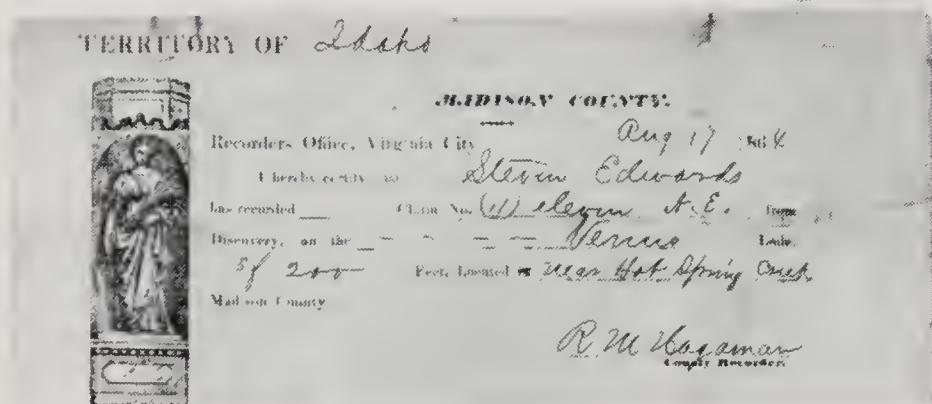 TERRITORY OF Idaho
MADISON COUNTY.
Recorders Office, Virginia City Aug 17 1864
I hereby certify Steven Edwards
has recorded Claim No. (11) eleven N. E. from
Discovery, on the Venus Lode.
of 200 Feet, Located near Hot Spring Creek
Madison County
R M Hagaman
County Recorder.